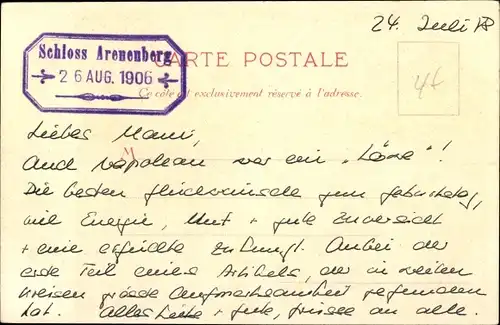 24. Juli
Schloss Arenenberg
26 AUG. 1906
CARTE POSTALE
Ce côté est exclusivement réservé à l'adresse.
Liebes
Auch Napoleon war ein „Löwe"!
Die besten Glückwünsche zum Geburtstag,
viel Energie, Mut + gute Zuversicht
+ eine erfüllte Zukunft. Anbei der
erste Teil eines Artikels, der in weiten
Kreisen grosse Aufmerksamkeit gefunden
hat. Alles Liebe + Gute, Grüsse an alle.